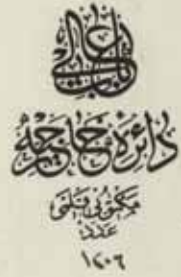 باب عالی
دائرۀ خارجیه
مکتوبی قلمی
عدد
١٤٠٦